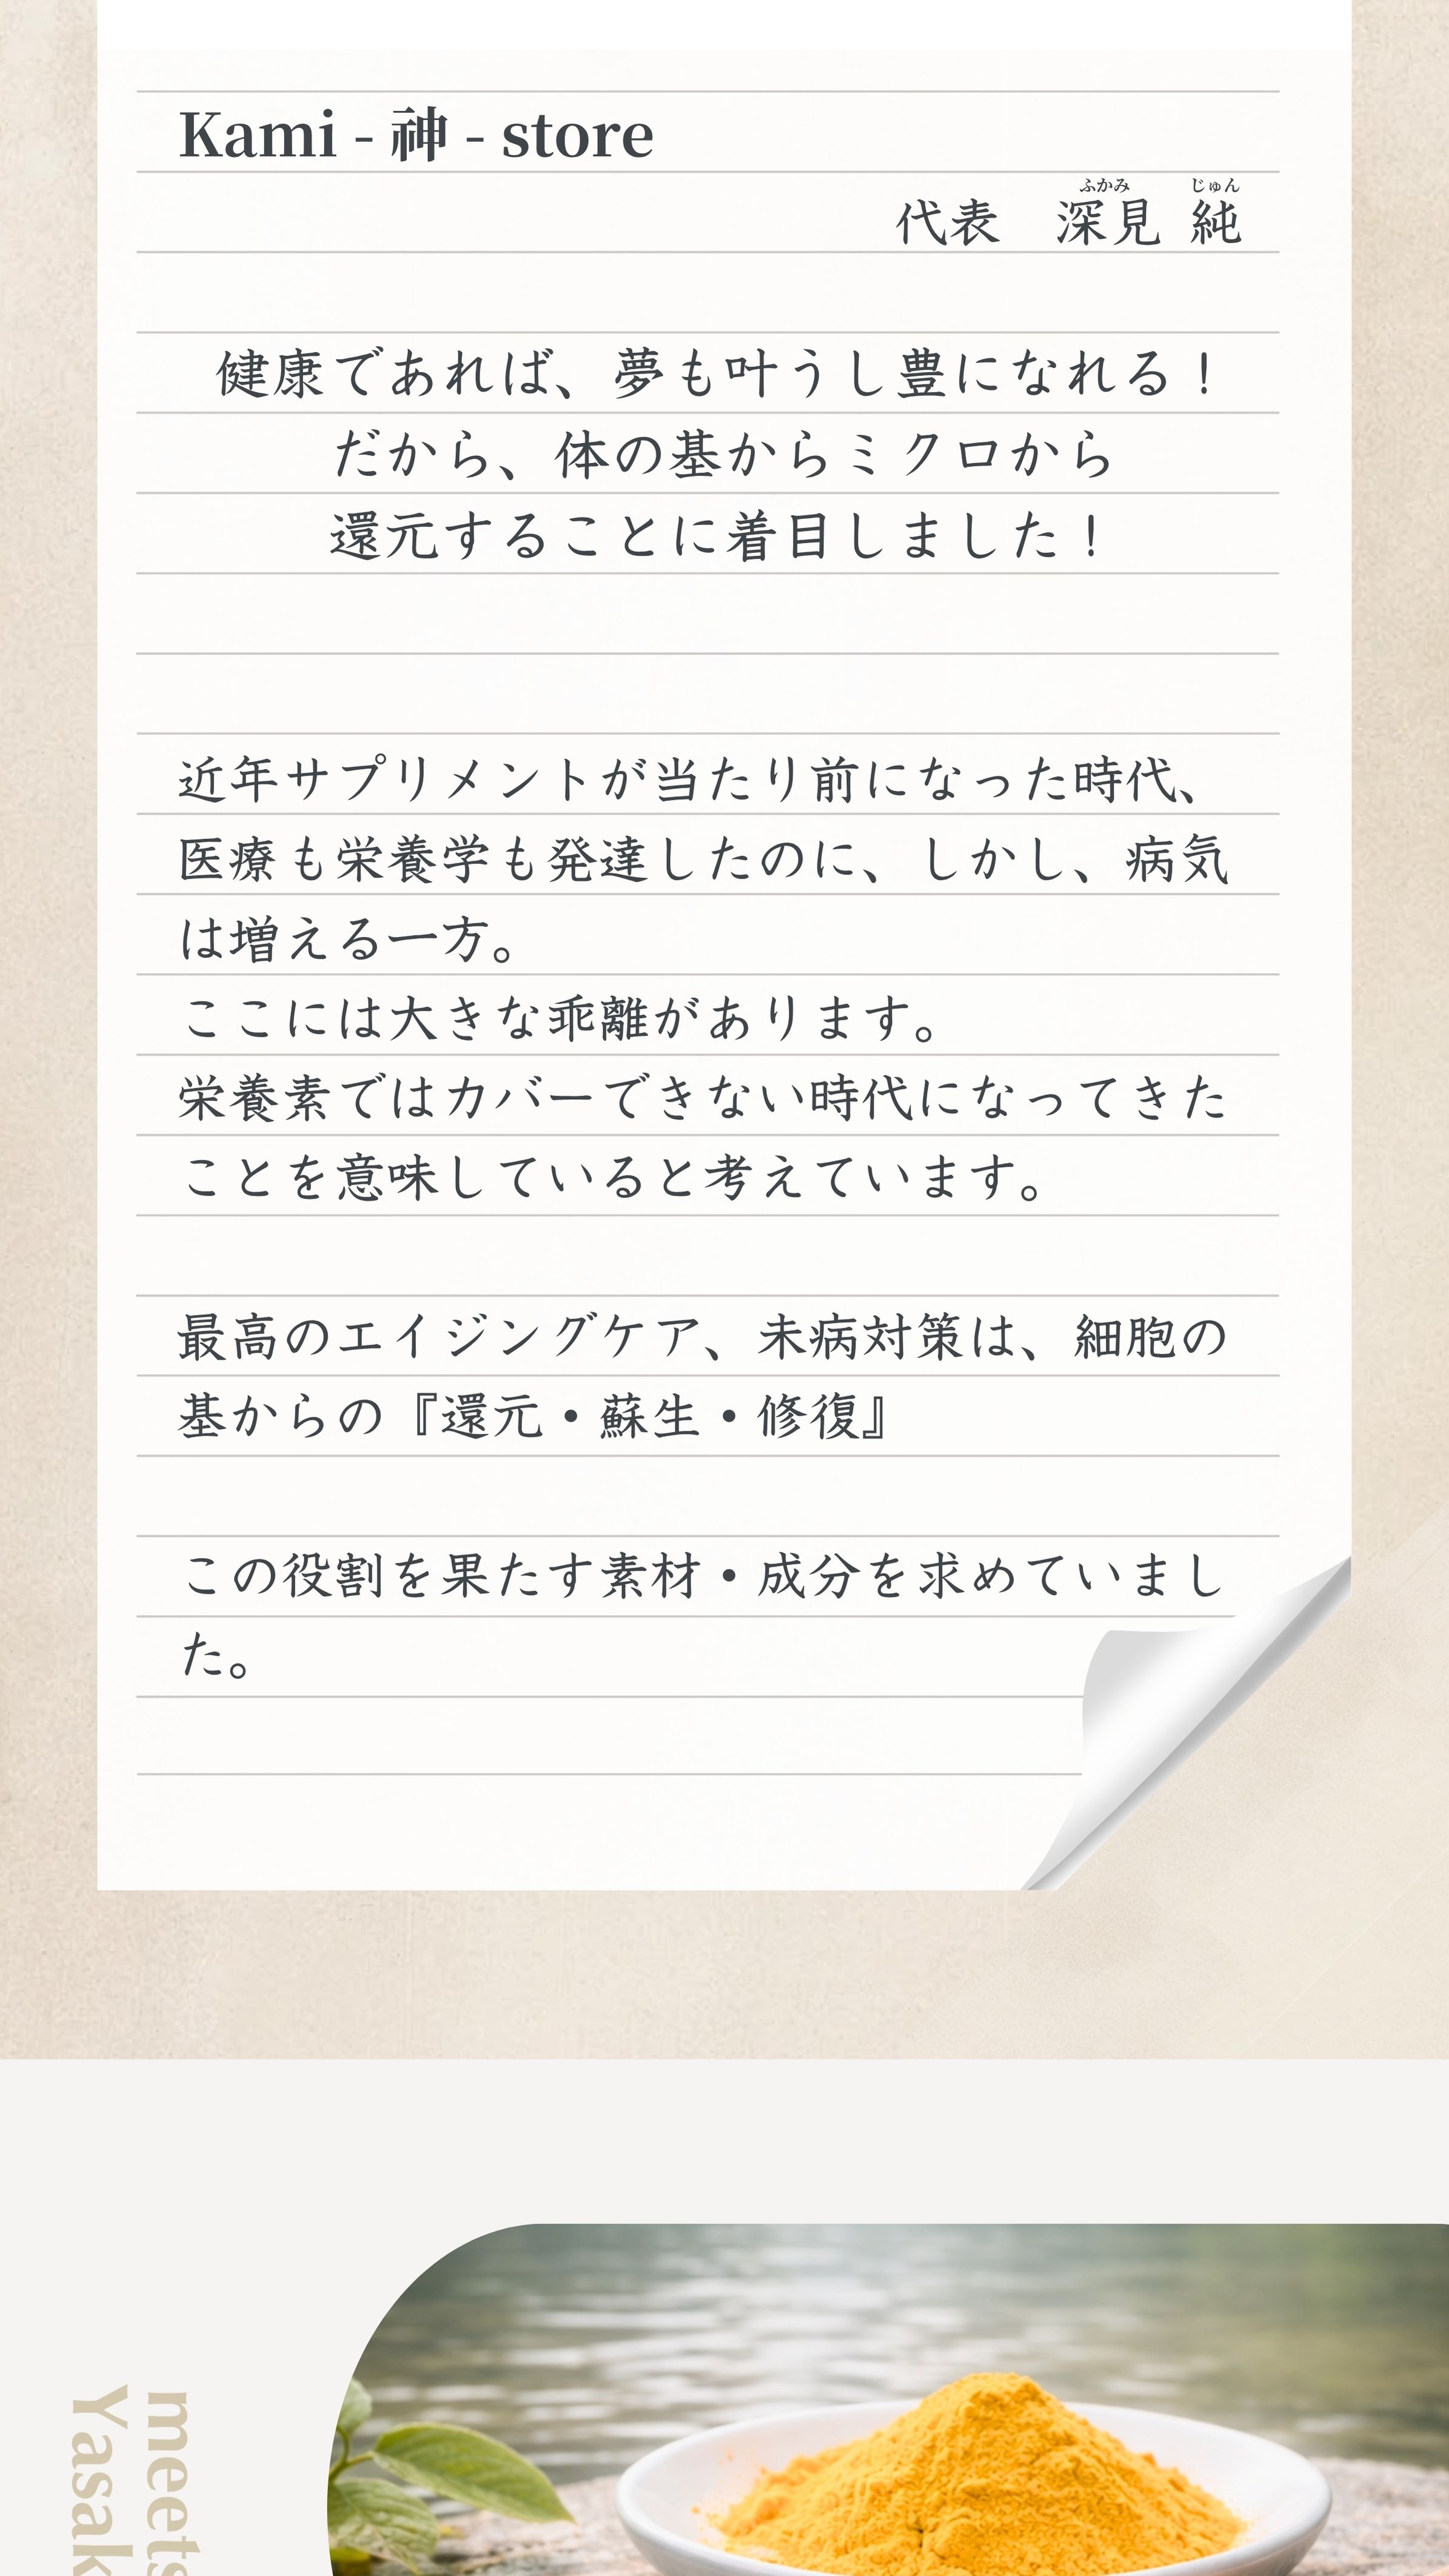 Kami - 神 - store
ふかみ じゅん
代表 深見 純
健康であれば、夢も叶うし豊になれる！
だから、体の基からミクロから
還元することに着目しました！
近年サプリメントが当たり前になった時代、
医療も栄養学も発達したのに、しかし、病気
は増える一方。
ここには大きな乖離があります。
栄養素ではカバーできない時代になってきた
ことを意味していると考えています。
最高のエイジングケア、未病対策は、細胞の
基からの『還元・蘇生・修復』
この役割を果たす素材・成分を求めていまし
た。
meets
Yasak